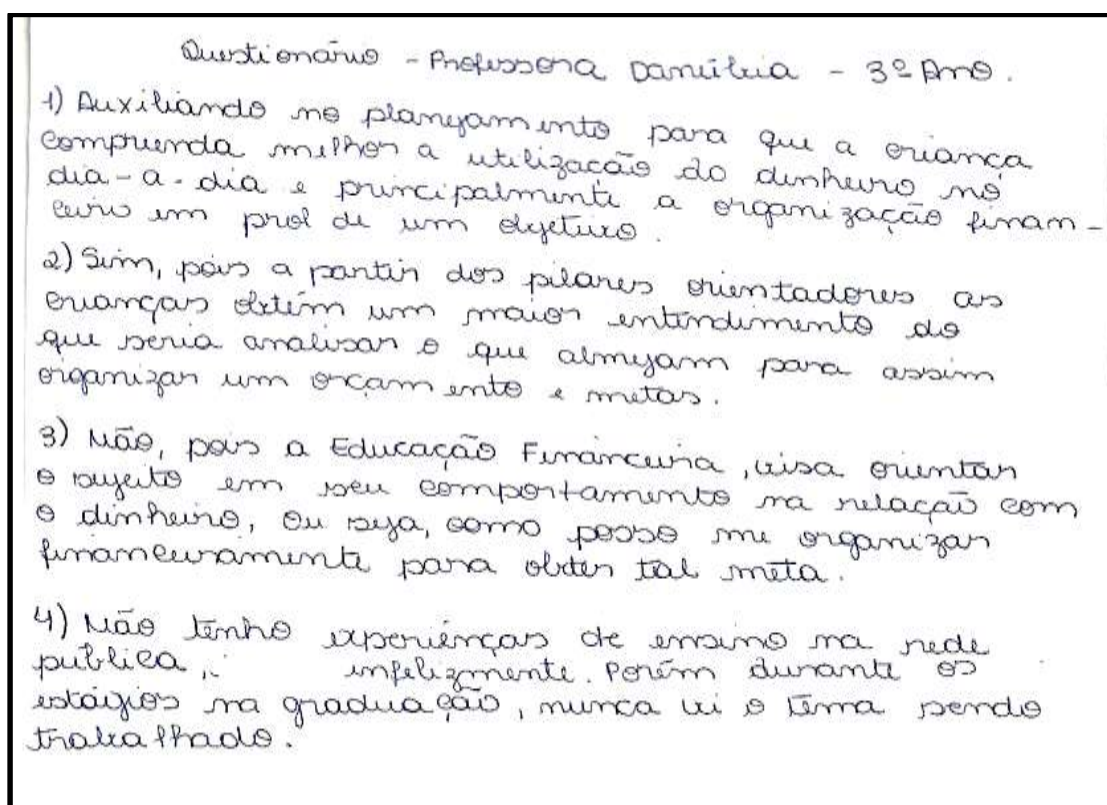 Questionário - Professora Daniléia - 3º Ano.
1) Auxiliando no planejamento para que a criança
compreenda melhor a utilização do dinheiro no
dia-a-dia e principalmente a organização finan-
ceiro em prol de um objetivo.
2) Sim, pois a partir dos pilares orientadores as
crianças obtém um maior entendimento do
que seria analisar o que almejam para assim
organizar um orçamento e metas.
3) Não, pois a Educação Financeira, visa orientar
o sujeito em seu comportamento na relação com
o dinheiro, ou seja, como posso me organizar
financeiramente para obter tal meta.
4) Não tenho experiências de ensino na rede
pública, infelizmente. Porém durante os
estágios na graduação, nunca vi o tema sendo
trabalhado.